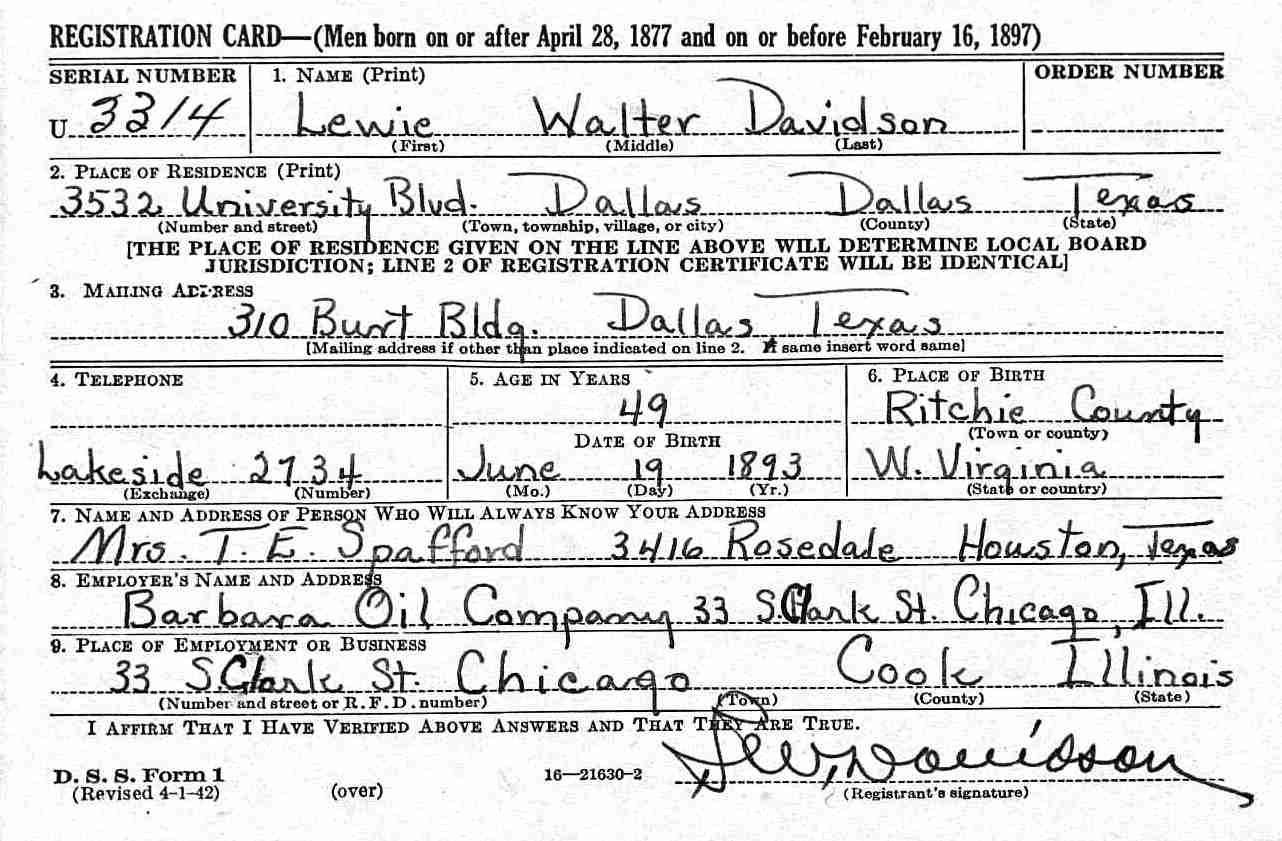 REGISTRATION CARD—(Men born on or after April 28, 1877 and on or before February 16, 1897)
SERIAL NUMBER 1. NAME (Print) ORDER NUMBER
U 3314 Lewie Walter Davidson
(First) (Middle) (Last)
2. PLACE OF RESIDENCE (Print)
3532 University Blvd. Dallas Dallas Texas
(Number and street) (Town, township, village, or city) (County) (State)
[THE PLACE OF RESIDENCE GIVEN ON THE LINE ABOVE WILL DETERMINE LOCAL BOARD
JURISDICTION; LINE 2 OF REGISTRATION CERTIFICATE WILL BE IDENTICAL]
3. MAILING ADDRESS
310 Burt Bldg. Dallas Texas
[Mailing address if other than place indicated on line 2. If same insert word same]
4. TELEPHONE 5. AGE IN YEARS 6. PLACE OF BIRTH
49 Ritchie County
DATE OF BIRTH (Town or county)
Lakeside 2734 June 19 1893 W. Virginia
(Exchange) (Number) (Mo.) (Day) (Yr.) (State or country)
7. NAME AND ADDRESS OF PERSON WHO WILL ALWAYS KNOW YOUR ADDRESS
Mrs. T. E. Spafford 3416 Rosedale Houston, Texas
8. EMPLOYER'S NAME AND ADDRESS
Barbara Oil Company 33 S. Clark St. Chicago, Ill.
9. PLACE OF EMPLOYMENT OR BUSINESS
33 S. Clark St. Chicago Cook Illinois
(Number and street or R. F. D. number) (Town) (County) (State)
I AFFIRM THAT I HAVE VERIFIED ABOVE ANSWERS AND THAT THEY ARE TRUE.
L W Davidson
D. S. S. Form 1 16—21630-2
(Revised 4-1-42) (over) (Registrant's signature)